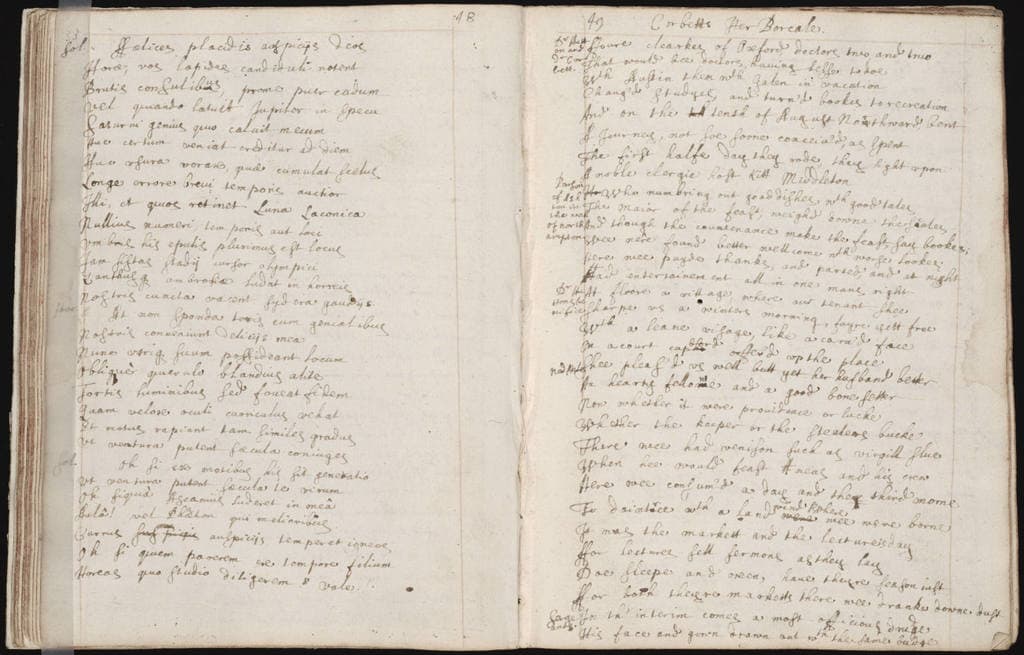 48
Sol. Fælices placidis auspicijs dies
Horæ, vos lapides candiduli notent
Brutis consulibus, prome puer cadum
Vel quando latuit Jupiter in specu
Saturni genius quo caluit merum
Hac certum veniat creditur ad diem
Hac vsura vorax, quæ cumulat
Longe errore brevi temporis auctior
Illi, et quos retinet Luna Laconica
Nullius numeri temporis aut loci
Vmbris his epulis plurimus est locus
Jam sistas stadij cursor olympici
ambrosiæ ludat in horreis
Nostris cuncta vacent sydera gaudijs
At non sponda toris cum genialibus
Nostris conveniunt delitijs mea
Nunc vtrig suum possideant locum
Obliquè querulo blandius alite
Tortis luminibus sed foveat fidem
Quam velox oculi curriculus vehat
Et motus rapiant tam similes gradus
Vt ventura putent sæcula coniuges
Sol. Oh si ex motibus his sit generatio
Vt ventura putent sæcula te virum
Oh siquis Ascanius luderet in meâ
Aulâ! vel Phæton qui melioribus
Currus auspicijs temperet igneos
Oh si quem parerem tempore filium
Horeas quo studio diligerem! vale.
49 Corbetts Iter Boreale.
Foure clearkes of Oxford doctors two, and two
That would bee doctors, having lesser to doe
With Austin then with Galen in vacation
Chang'd studyes, and turn'd bookes to recreation
And on the tenth of August Northward bent
A Journey, not soe soone conceiv'd, as spent
The first halfe day they rode, they light upon
A noble clergie host Kitt Middleton
Who numbring out good dishes with good tales
The maior of the feast weigh'd downe the scales
And though the countenance make the feast, say bookes,
Wee nere found better wellcome with worse lookes.
Here wee payde thanks, and parted, and at night
Had entertainement all in one mans right
At Floore a village where our tenant shee
Sharpe as a winters morning, fayre yett free
With a leane visage, like a carv'd face
On a court cupbord offer'd vp the place
Shee pleas'd vs well butt yet her husband better
An hearty fellow and a good bone setter
Now whether it were providence or lucke
Whether the keeper or the stealers bucke
There wee had venison such as virgill slue
When hee would feast Æneas and his crew
Here wee consum'd a day and the third morne
To daintree with a land wind wee were borne
It was the markett and the lectures day
For lectures sell sermons as they lay
Doe sheepe and oxen, have theyre season iust
For both theyre marketts there wee dranke downe dust
In th' interim comes a most officious drudge
His face and gown drawn out with the same budge